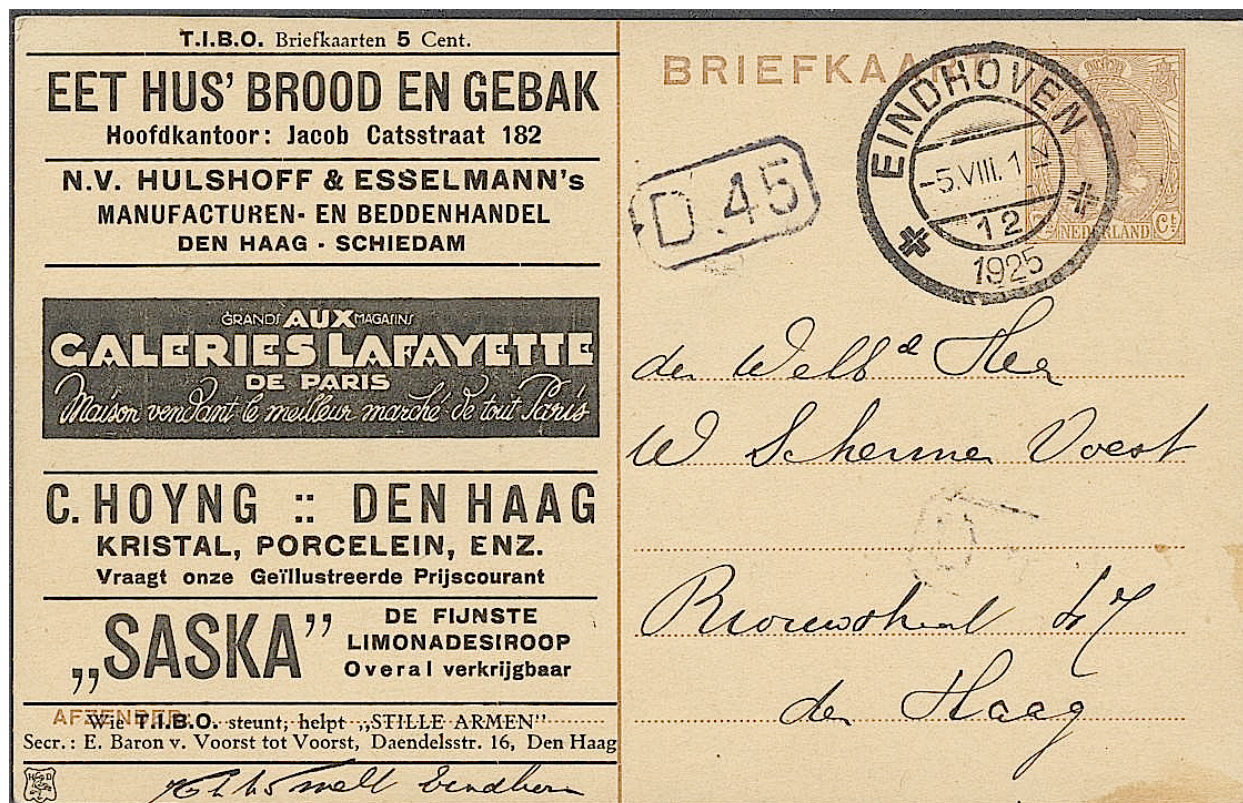 T.I.B.O. Briefkaarten 5 Cent.
EET HUS' BROOD EN GEBAK
Hoofdkantoor: Jacob Catsstraat 182
N.V. HULSHOFF & ESSELMANN's
MANUFACTUREN- EN BEDDENHANDEL
DEN HAAG - SCHIEDAM
GRANDS AUX MAGASINS
GALERIES LAFAYETTE
DE PARIS
Maison vendant le meilleur marché de tout Paris
C. HOYNG :: DEN HAAG
KRISTAL, PORCELEIN, ENZ.
Vraagt onze Geïllustreerde Prijscourant
„SASKA”
DE FIJNSTE
LIMONADESIROOP
Overal verkrijgbaar
AFZENDER:
Wie T.I.B.O. steunt, helpt „STILLE ARMEN”
Secr.: E. Baron v. Voorst tot Voorst, Daendelsstr. 16, Den Haag
H D
Eindhoven
BRIEFKAART
EINDHOVEN
-5.VIII. 1
12
1925
NEDERLAND Ct
D.45
den Welb Heer
W Scherme Voest
47
den Haag